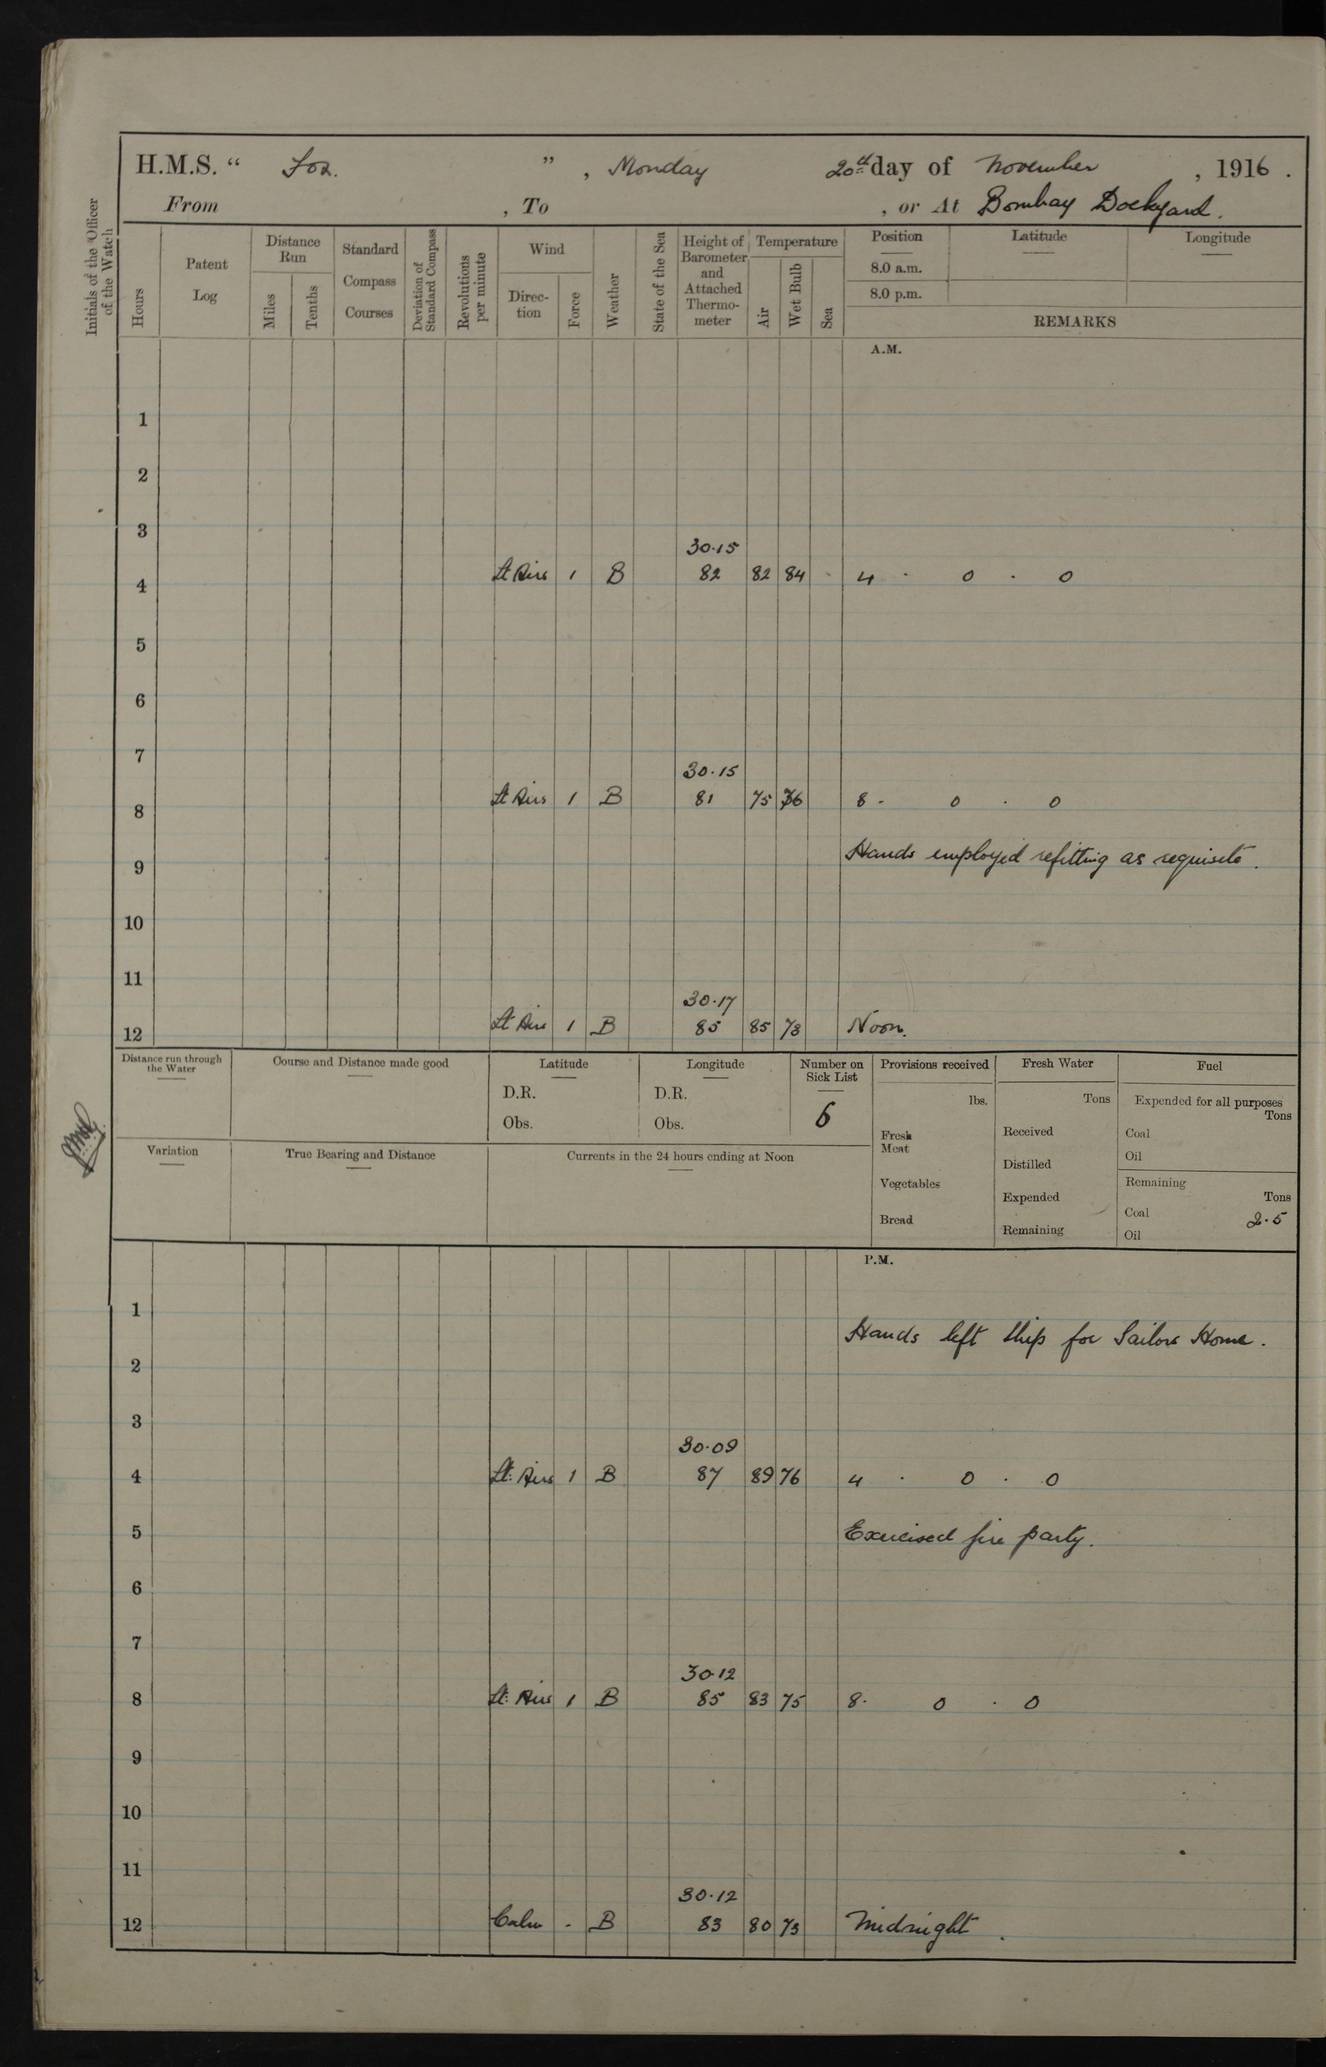 H.M.S. “ Fox. ” , Monday 20th day of November , 1916 .
From , To , or At Bombay Dockyard.
Initials of the Officer of the Watch
Hours
Patent Log
Distance Run
Miles
Tenths
Standard Compass Courses
Deviation of Standard Compass
Revolutions per minute
Wind
Direc-tion
Force
Weather
State of the Sea
Height of Barometer and Attached Thermo-meter
Temperature
Air
Wet Bulb
Sea
Position Latitude Longitude
8.0 a.m.
8.0 p.m.
REMARKS
A.M.
1
2
3
30.15
4 Lt Airs 1 B 82 82 84 4 . 0 . 0
5
6
7
30.15
8 Lt Airs 1 B 81 75 76 8 . 0 . 0
9 Hands employed refitting as requisite.
10
11
30.17
12 Lt Airs 1 B 85 85 73 Noon.
Distance run through the Water
Course and Distance made good
Latitude
D.R.
Obs.
Longitude
D.R.
Obs.
Number on Sick List
6
Provisions received
lbs.
Fresh Meat
Vegetables
Bread
Fresh Water
Tons
Received
Distilled
Expended
Remaining
Fuel
Expended for all purposes
Tons
Coal
Oil
Remaining
Tons
Coal 2.5
Oil
Variation
True Bearing and Distance
Currents in the 24 hours ending at Noon
P.M.
1
Hands left ship for Sailors Home.
2
3
30.09
4 Lt: Airs 1 B 87 89 76 4 . 0 . 0
5 Exercised fire party.
6
7
30.12
8 Lt: Airs 1 B 85 83 75 8. 0 . 0
9
10
11
30.12
12 Calm - B 83 80 73 Midnight.